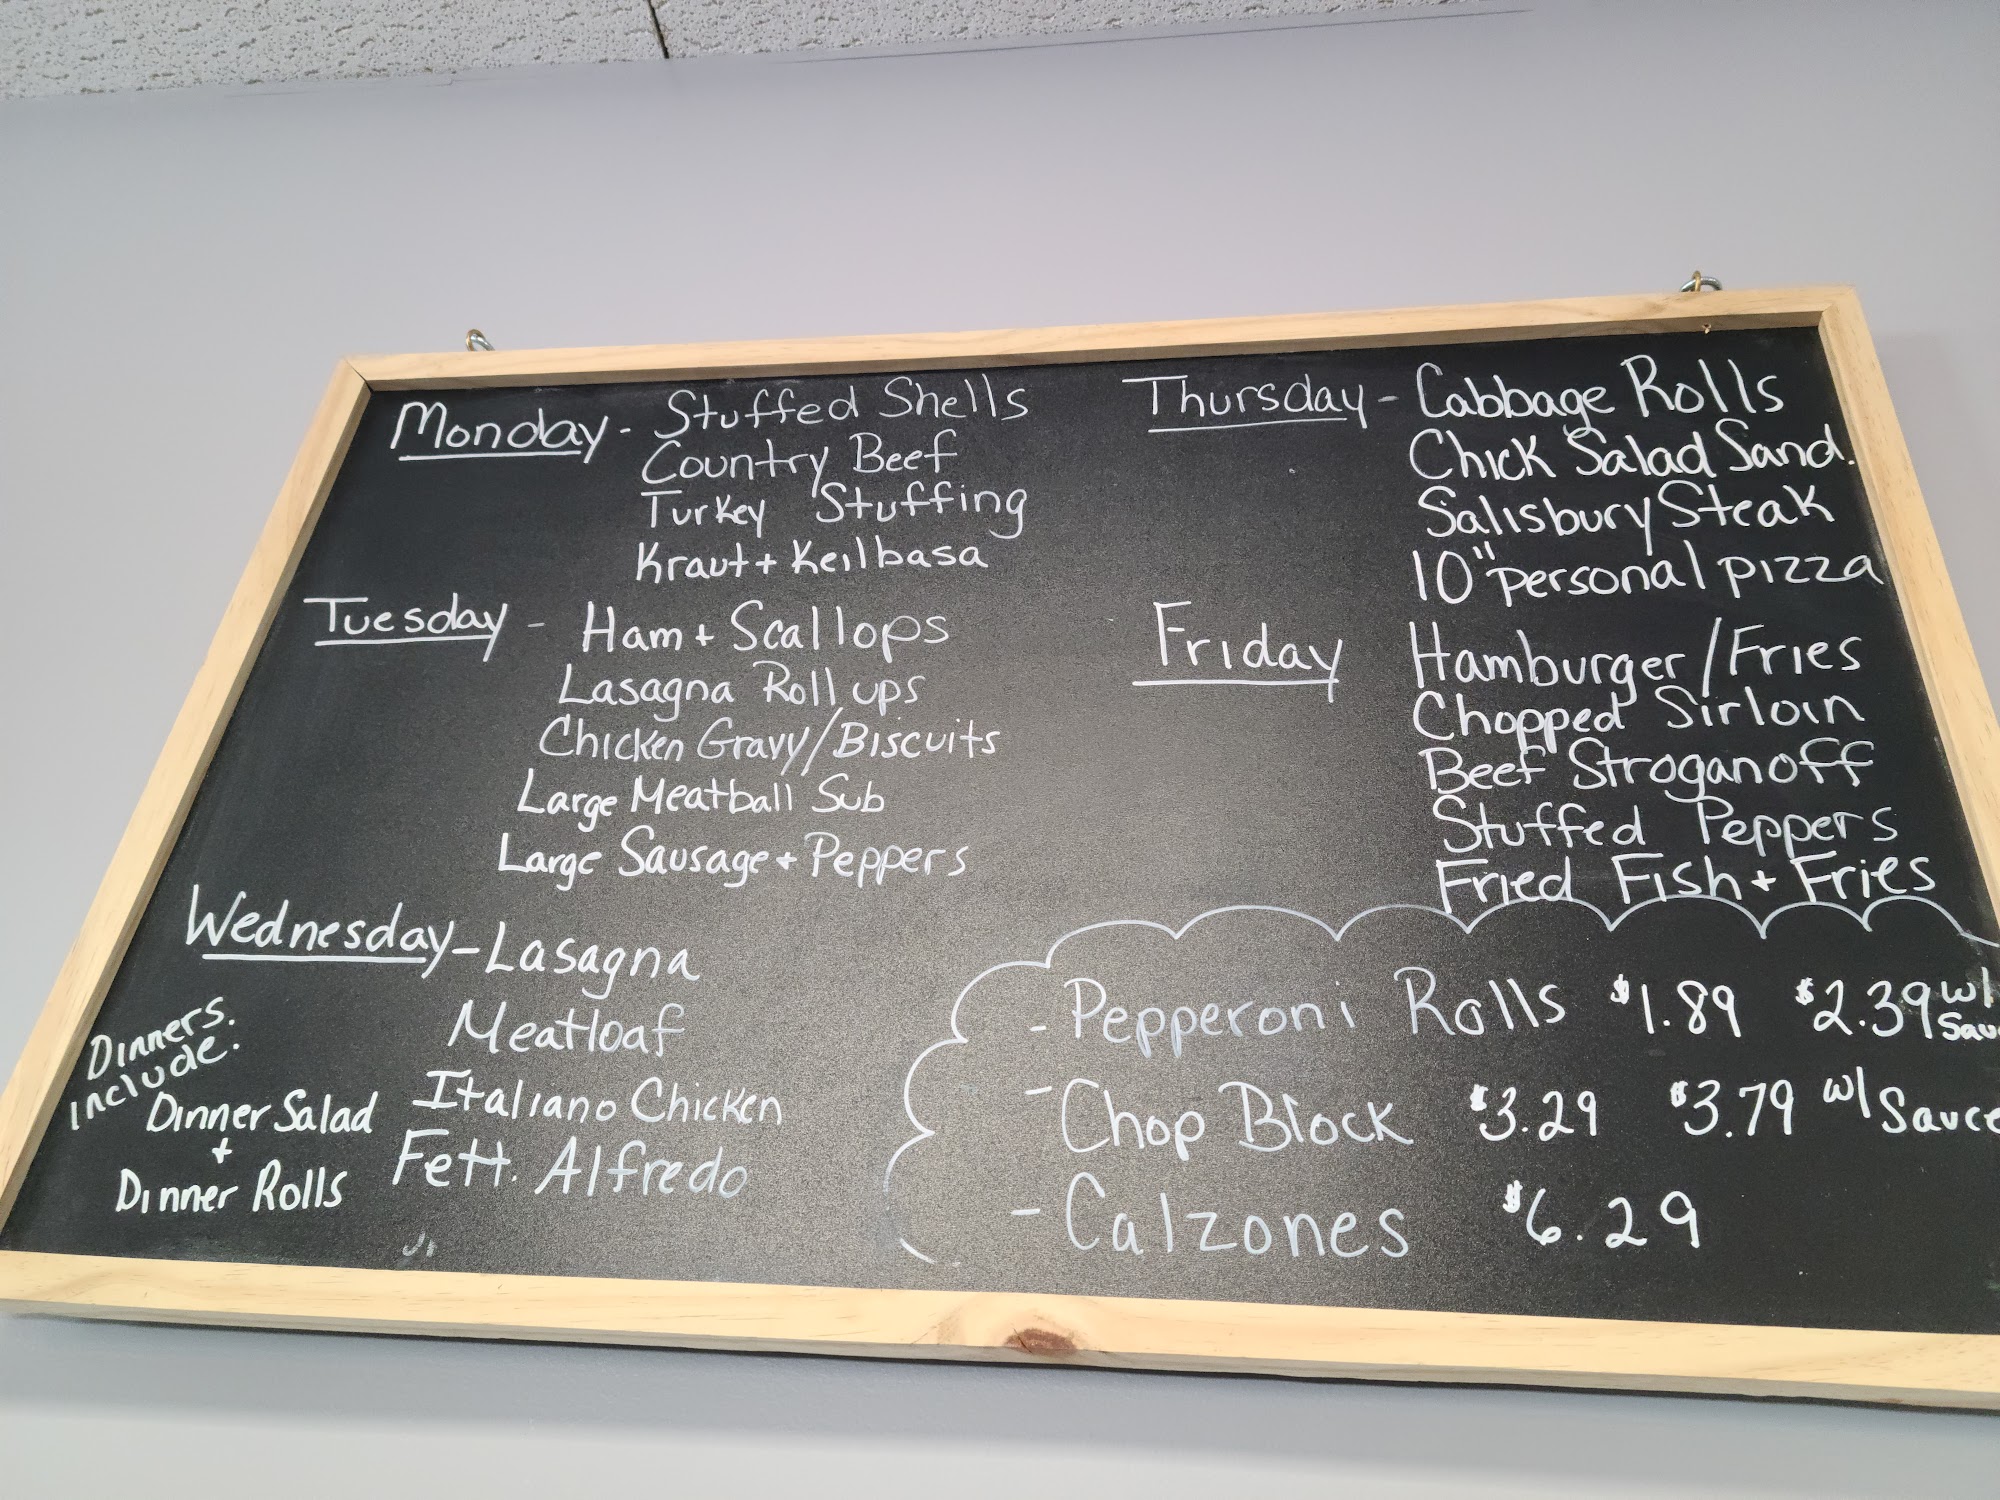 Monday - Stuffed Shells
Country Beef
Turkey Stuffing
Kraut + Keilbasa
Tuesday - Ham + Scallops
Lasagna Roll ups
Chicken Gravy/Biscuits
Large Meatball Sub
Large Sausage + Peppers
Wednesday - Lasagna
Meatloaf
Italiano Chicken
Fett. Alfredo
Dinners.
include.
Dinner Salad
+
Dinner Rolls
Thursday - Cabbage Rolls
Chick Salad Sand.
Salisbury Steak
10" personal pizza
Friday Hamburger/Fries
Chopped Sirloin
Beef Stroganoff
Stuffed Peppers
Fried Fish + Fries
- Pepperoni Rolls $1.89 $2.39 w/
- Chop Block $3.29 $3.79 w/ Sauce
- Calzones $6.29